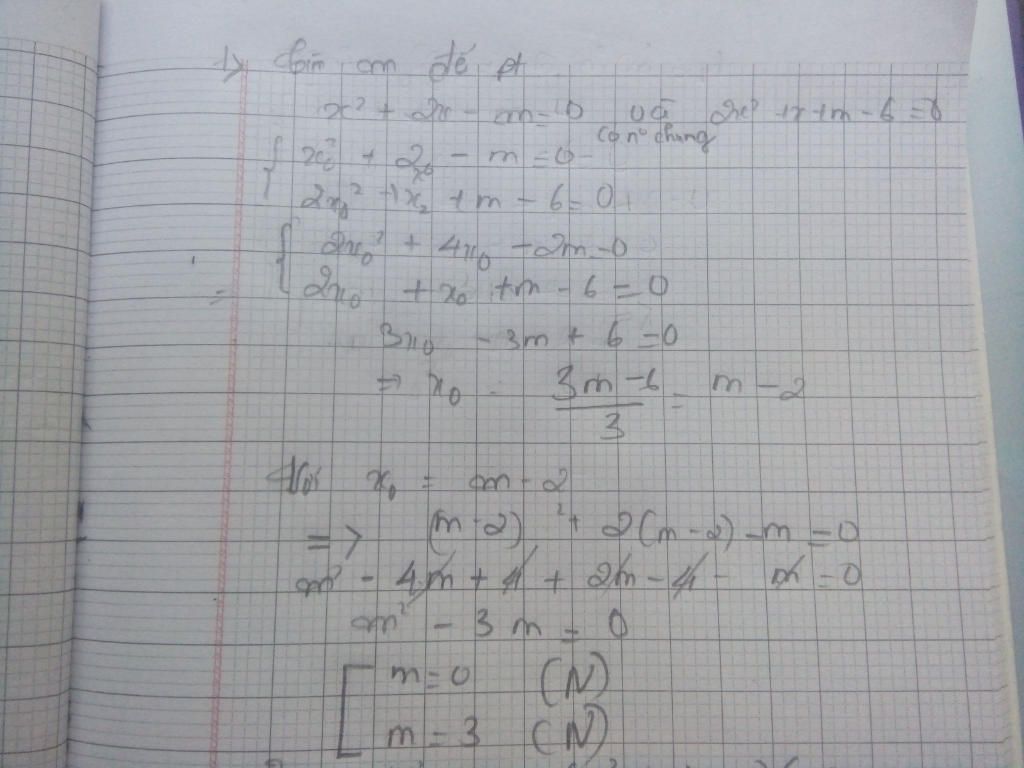 1> tìm m để pt
x² + 2x - m = 0 và 2x² + x + m - 6 = 0
có n° chung
{ x₀² + 2x₀ - m = 0
2x₀² + x₂ + m - 6 = 0
{ 2x₀² + 4x₀ - 2m = 0
= 2x₀ + x₀ + m - 6 = 0
3x₀ - 3m + 6 = 0
=> x₀ = (3m - 6)/3 = m - 2
Với x₀ = m - 2
=> (m - 2)² + 2(m - 2) - m = 0
m² - 4m + 4 + 2m - 4 - m = 0
m² - 3m = 0
[ m = 0 (N)
m = 3 (N)